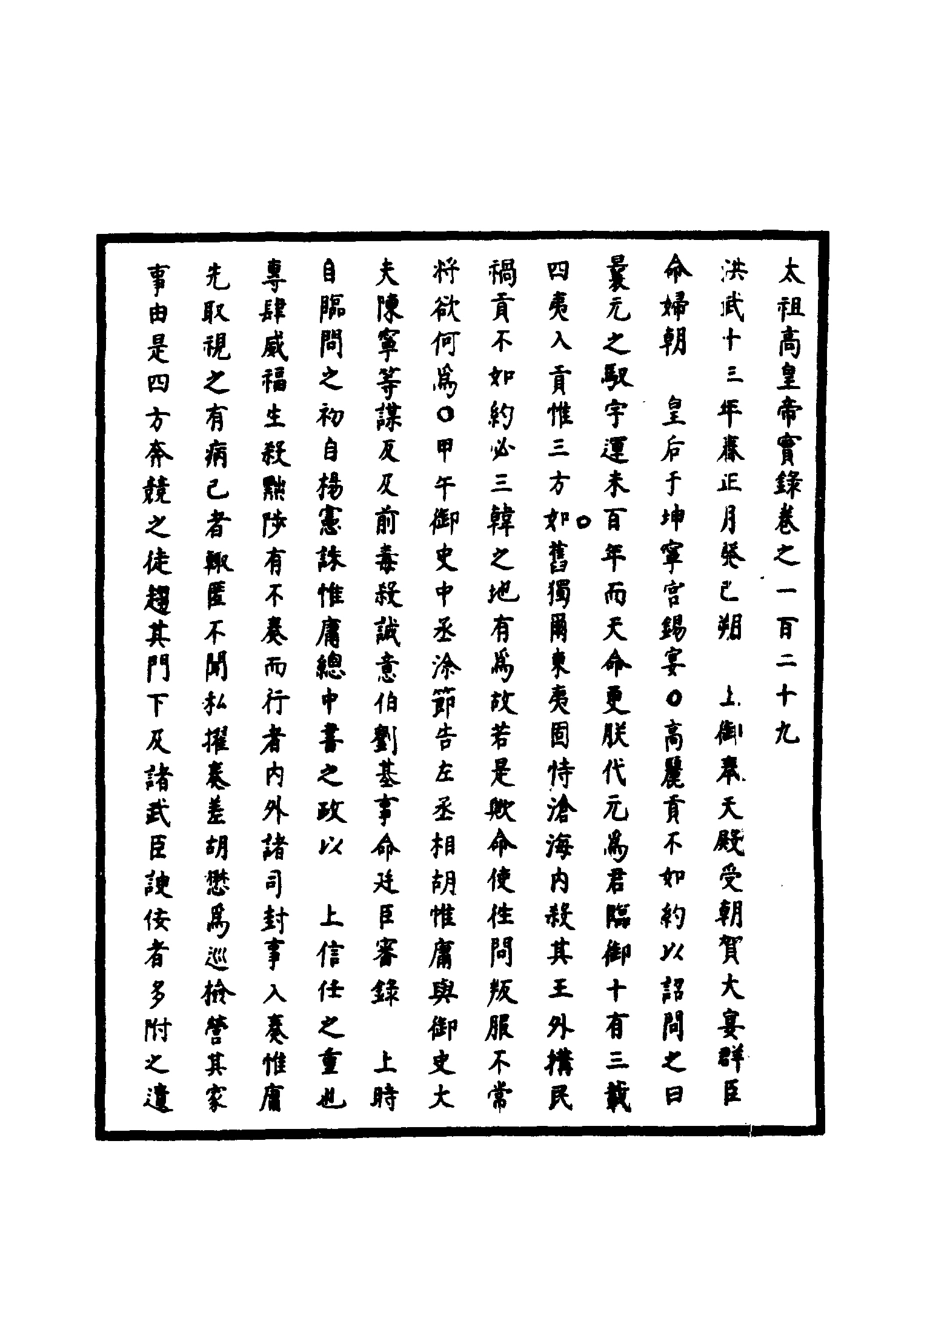 太祖高皇帝實錄卷之一百二十九
洪武十三年春正月癸巳朔　上御奉天殿受朝賀大宴群臣
命婦朝　皇后于坤寧宮錫宴○高麗貢不如約以詔問之曰
曩元之馭宇運未百年而天命更朕代元為君臨御十有三載
四夷入貢惟三方如舊獨爾東夷固恃滄海內殺其王外搆民
禍貢不如約必三韓之地有為故若是歟命使徃問叛服不常
将欲何為○甲午御史中丞涂節告左丞相胡惟庸與御史大
夫陳寧等謀反及前毒殺誠意伯劉基事命廷臣審錄　上時
自臨問之初自楊憲誅惟庸總中書之政以　上信任之重也
專肆威福生殺黜陟有不奏而行者內外諸司封事入奏惟庸
先取視之有病己者輙匿不聞私擢奏差胡懋為巡檢營其家
事由是四方奔競之徒趨其門下及諸武臣諛佞者多附之遺